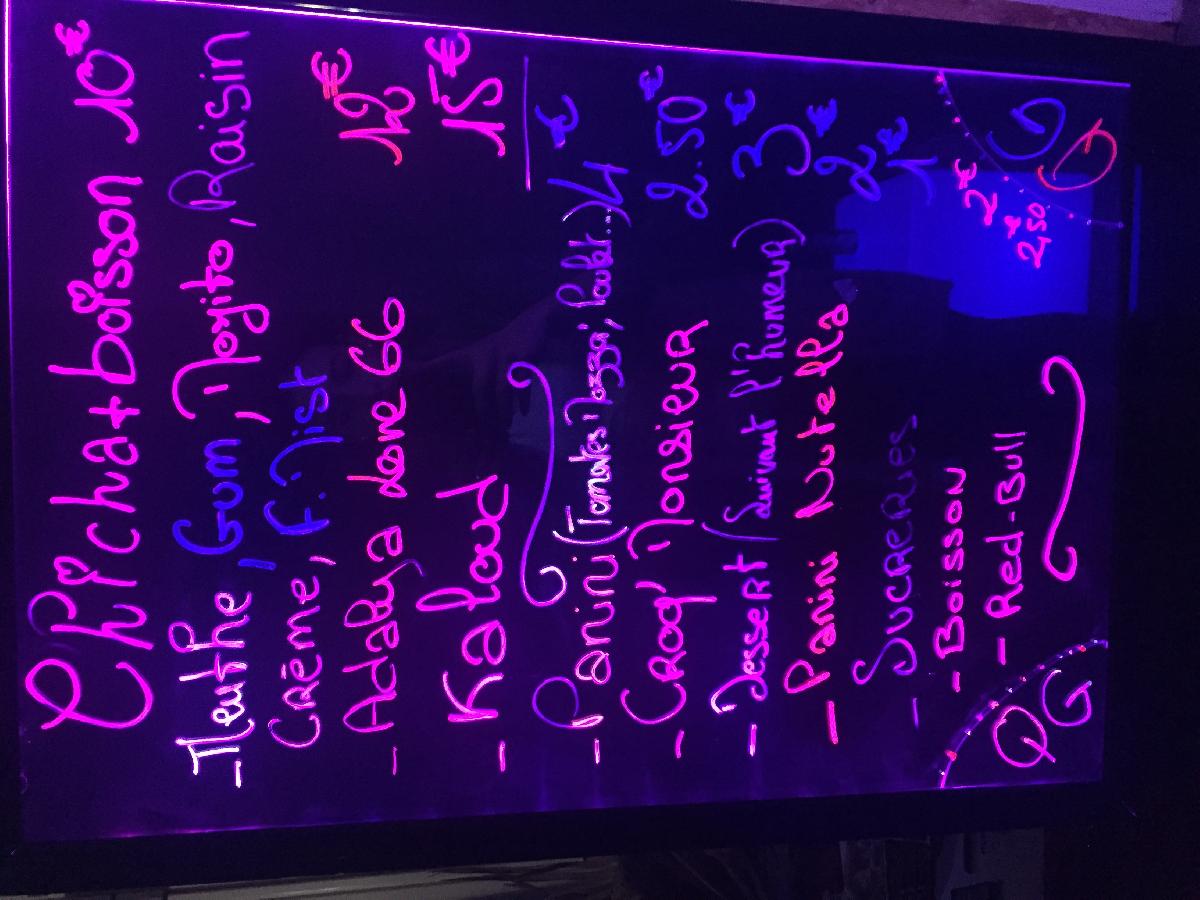 Chicha+boisson 10€
- Menthe, Gum, Mojito, Raisin
Crème, F. Mist
- Adalya love 66 12€
- Kaloud 15€
- Panini (Tomates Mozza; Poulet...) 4€
- Croq' Monsieur 2.50€
- Dessert (Suivant l'humeur) 3€
- Panini Nutella 2€
- Sucreries 1€
- Boisson 2€
- Red-Bull 2,50€
QG
QG